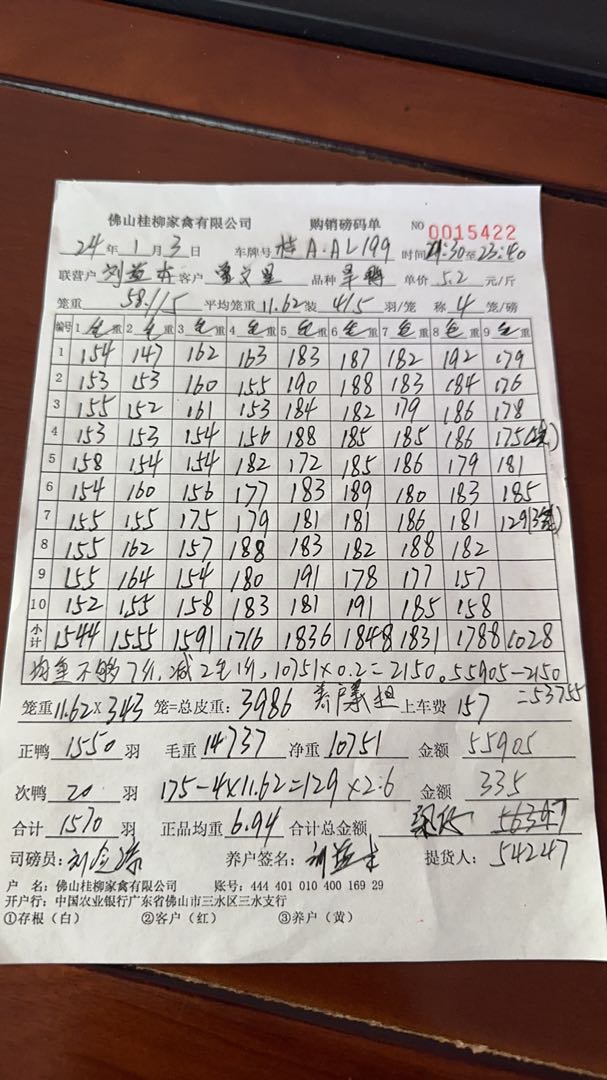 佛山桂柳家禽有限公司 购销磅码单 NO 0015422
24 年 1 月 3 日 车牌号 桂A·AL199 时间 21:30 至 23:40
联营户 刘益本 客户 品种 旱鸭 单价 5.2 元/斤
笼重 58.1/5 平均笼重 11.62 装 4/5 羽/笼 称 4 笼/磅
编号 1 毛 重 2 毛 重 3 毛 重 4 毛 重 5 毛 重 6 毛 重 7 毛 重 8 毛 重 9 毛 重
1 154 147 162 163 183 187 182 192 179
2 153 153 160 155 190 188 183 184 176
3 155 152 161 153 184 182 179 186 178
4 153 153 154 156 188 185 185 186 175
5 158 154 154 182 172 185 186 179 181
6 154 160 156 177 183 189 180 183 185
7 155 155 175 179 181 181 186 181 129
8 155 162 157 188 183 182 188 182
9 155 164 154 180 191 178 177 157
10 152 155 158 183 181 191 185 158
小计 1544 1555 1591 1716 1836 1848 1831 1788 1028
均重不够7斤,减2毛1斤,10751×0.2=2150。55905-2150
=53755
笼重 11.62× 343 笼=总皮重: 3986 上车费 157
正鸭 1550 羽 毛重 14737 净重 10751 金额 55905
次鸭 20 羽 175-4×11.62=129×2.6 金额 335
合计 1570 羽 正品均重 6.94 合计总金额 56397
司磅员: 养户签名: 刘益本 提货人: 54247
户 名:佛山桂柳家禽有限公司 账号:444 401 010 400 169 29
开户行:中国农业银行广东省佛山市三水区三水支行
①存根(白) ②客户(红) ③养户(黄)